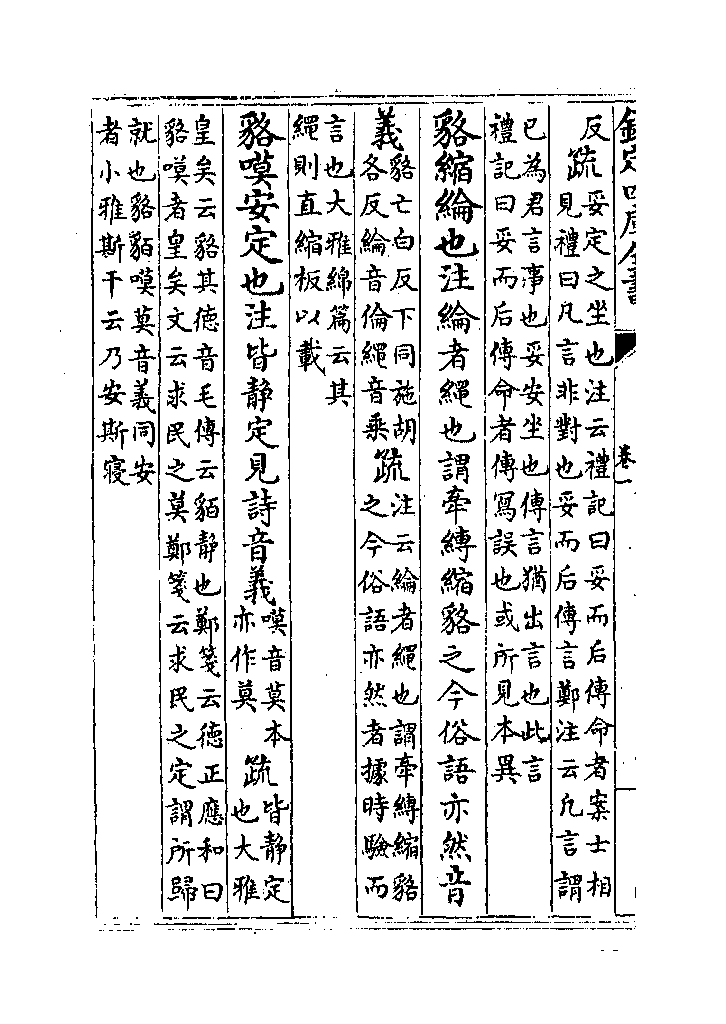 欽定四庫全書
卷一
反疏妥定之坐也注云禮記曰妥而后傳命者案士相
見禮曰凡言非對也妥而后傳言鄭注云凡言謂
已為君言事也妥安坐也傳言猶出言也此言
禮記曰妥而后傳命者傳寫誤也或所見本異
貉縮綸也注綸者繩也謂牽縛縮貉之今俗語亦然音
義貉亡白反下同施胡
各反綸音倫繩音乘疏注云綸者繩也謂牽縛縮貉
之今俗語亦然者據時驗而
言也大雅綿篇云其
繩則直縮板以載
貉嘆安定也注皆静定見詩音義嗼音莫本
亦作莫疏皆静定
也大雅
皇矣云貉其德音毛傳云貊静也鄭箋云德正應和曰
貉嗼者皇矣文云求民之莫鄭箋云求民之定謂所歸
就也貉貊嗼莫音義同安
者小雅斯干云乃安斯寢